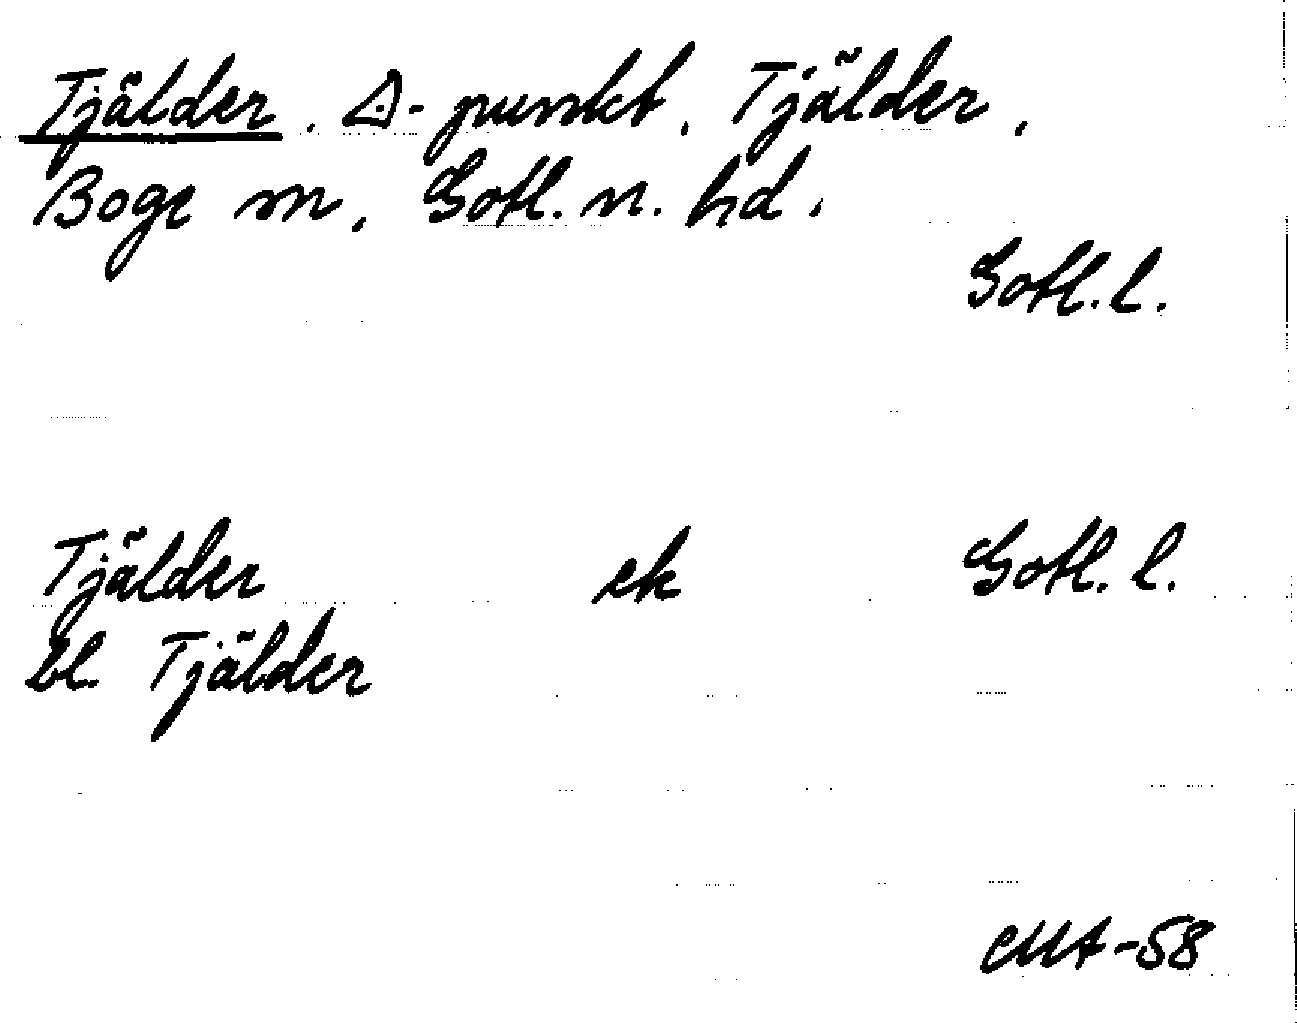 Tjälder. ⊿-punkt. Tjälder,
Boge sn, Gotl. n. hd.
Gotl. l.
Tjälder ek Gotl. l.
bl. Tjälder
MA-58